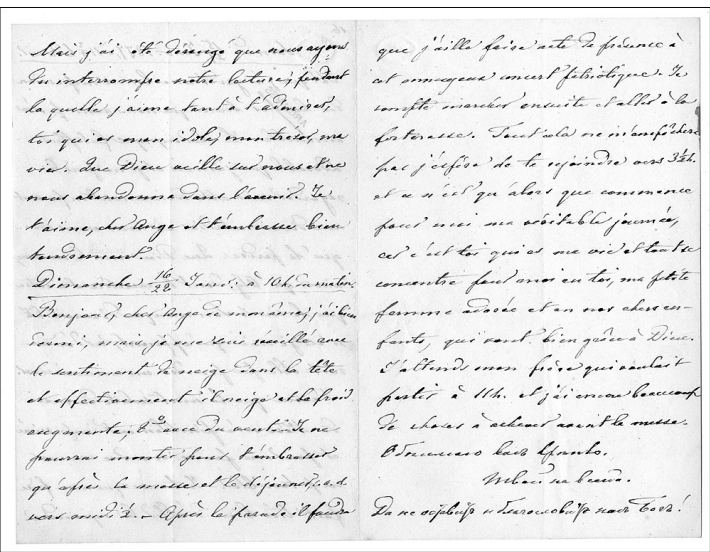 Mais j'ai été dérangé que nous ayons
dû interrompre notre lecture, pendant
laquelle j'aime tant à t'admirer,
toi qui es mon idole, mon tresor, ma
vie. Que Dieu veille sur nous et ne
nous abandonne dans l'avenir. Je
t'aime, cher Ange et t'embrasse bien
tendrement.
Dimanche 16/28 Janv: à 10h. du matin.
Bonjour, cher Ange de mon âme, j'ai bien
dormi, mais je me suis réveillé avec
le sentiment de neige dans la tête
et effectivement il neige et le froid
augmente, avec du vent. Je ne
pourrai monter pour t'embrasser
qu'après la messe et le déjeuner, c.à.d.
vers midi ½. – Après la parade il faudra
que j'aille faire acte de présence à
cet ennuyeux concert patriotique. Je
compte marcher ensuite et aller à la
forteresse. Tout cela ne m'empêchera
pas j'espère de te rejoindre vers 3½h.
et ce n'est qu'alors que commence
pour moi ma véritable journée,
car c'est toi qui es ma vie et tout se
concentre pour moi en toi, ma petite
femme adorée et en nos chers en-
fants, qui vont bien grâce à Dieu.
J'attends mon frère qui voulait
partir à 11h. et j'ai encore beaucoup
de choses à achever avant la messe.
Обнимаю васъ
Твой на всегда.
Да не оставитъ и благословитъ насъ Богъ!